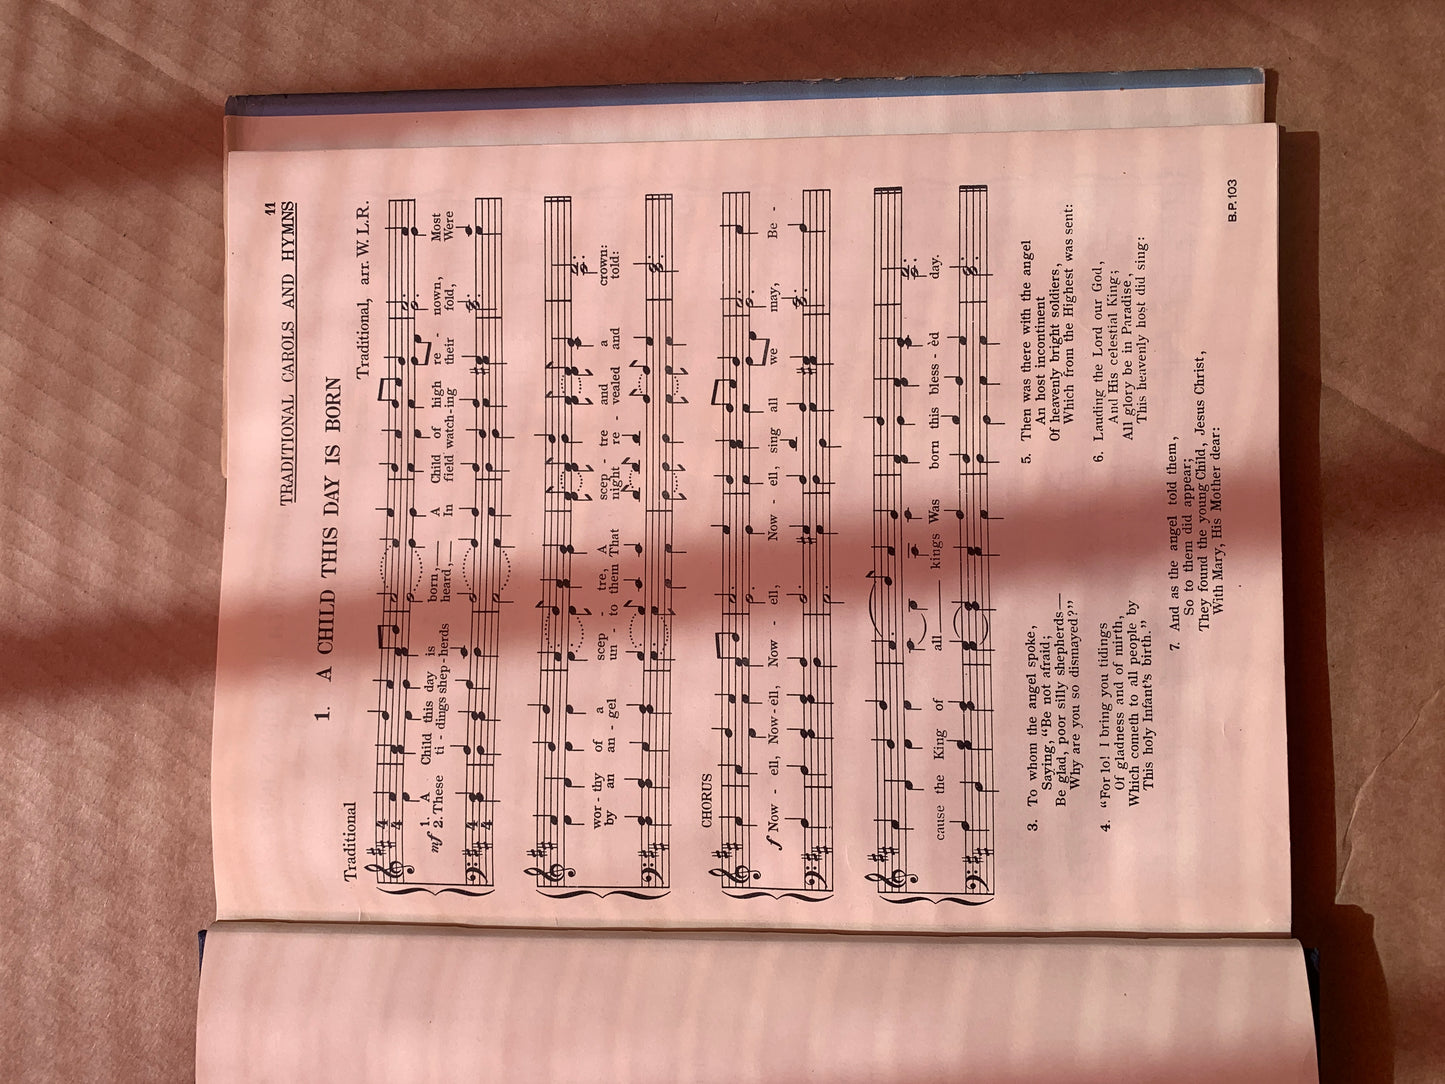 11
TRADITIONAL CAROLS AND HYMNS
1. A CHILD THIS DAY IS BORN
Traditional
Traditional, arr. W. L. R.
mf 1. A Child this day is born,— A Child of high re - nown, Most
2. These ti - dings shep-herds heard,— In field watch-ing their fold, Were
wor - thy of a scep - tre, A scep - tre and a crown:
by an an - gel un - to them That night re - vealed and told:
CHORUS
f Now - ell, Now-ell, Now - ell, Now - ell, sing all we may, Be -
cause the King of all kings Was born this bless - èd day.
3. To whom the angel spoke,
Saying, “Be not afraid;
Be glad, poor silly shepherds—
Why are you so dismayed?”
4. “For lo! I bring you tidings
Of gladness and of mirth,
Which cometh to all people by
This holy Infant's birth.”
5. Then was there with the angel
An host incontinent
Of heavenly bright soldiers,
Which from the Highest was sent:
6. Lauding the Lord our God,
And His celestial King;
All glory be in Paradise,
This heavenly host did sing:
7. And as the angel told them,
So to them did appear;
They found the young Child, Jesus Christ,
With Mary, His Mother dear:
B.P. 103